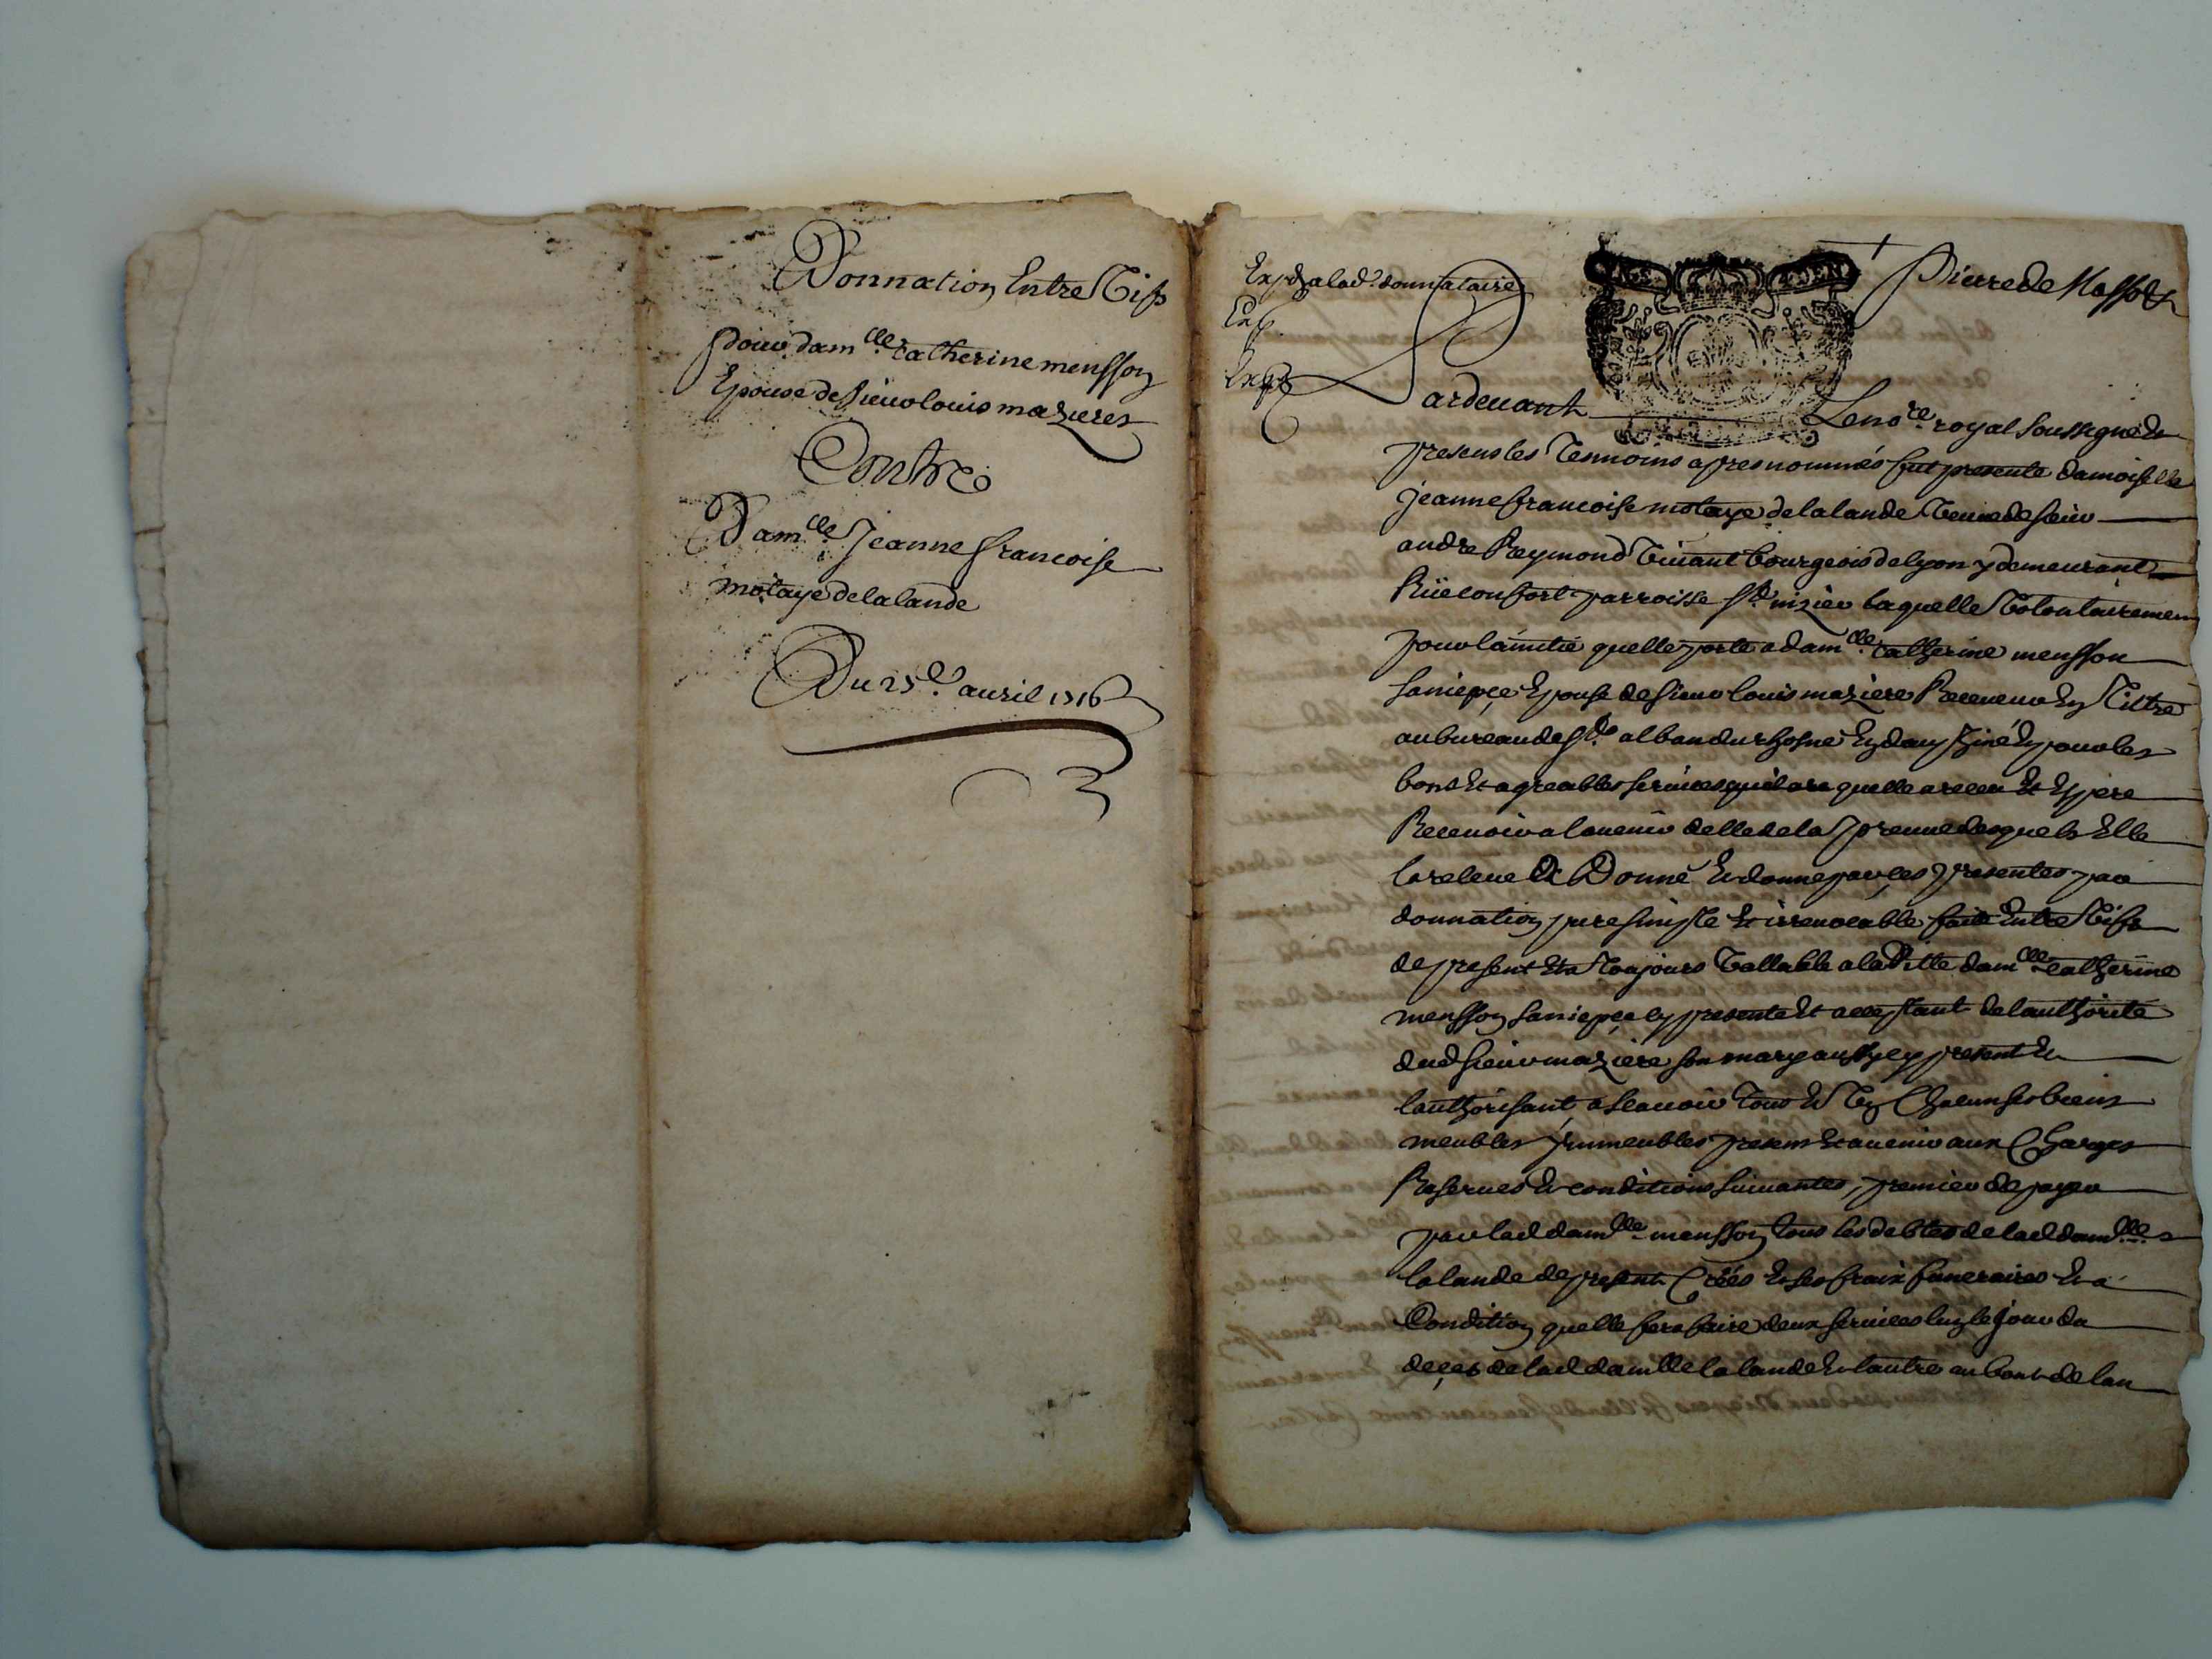 Donnation Entre Vifs
pour dam.lle catherine mensson
Epouse de sieur louis mazieres
Contre
Dam.lle Jeanne francoise
motaye de la lande
Du 25.e auril 1716
Exp.e a lad.e donnataire
Exp.
Exp.
Pierre de Masso
Pardeuant Le no.re royal soussigné Et
presens les Tesmoins apres nommés fut presente damoiselle
jeanne francoise motaye de la lande Veuue de sieur
andre Reymond Viuant bourgeois de lyon y demeurant
Rüe confort parroisse St. nizier laquelle Volontairemen
pour lamitié quelle porte a dam.lle catherine mensson
sa niepçe Epouse de sieur louis maziere Receueur En Tiltre
au bureau de St. alban du rhosne En dauphiné Et pour les
bons Et agreables seruices quelle a receu Et Espere
Receuoir a lauenir delle de la preuue desquels Elle
la releue A Donné Et donne par çes presentes par
donnation pure simple Et irreuocable faite Entre Vifs
de present Et a Toujours Vallable a la Ditte dam.lle catherine
mensson sa niepçe cy presente Et acceptant de lauthorité
dud sieur maziere son mary aussy cy present Et
lauthorisant, a scauoir Tous Et Un Chacun ses biens
meubles Jmmeubles presens Et auenir aux Charges
Reserues Et conditions suiuantes, premier de payer
par lad dam.lle mensson Tous les debtes de lad dam.lle
lalande de present Créés Et ses fraix funeraires Et a
Condition quelle fera faire deux seruices lun le jour du
deçes de lad damlle la lande Et lautre au bout de lan